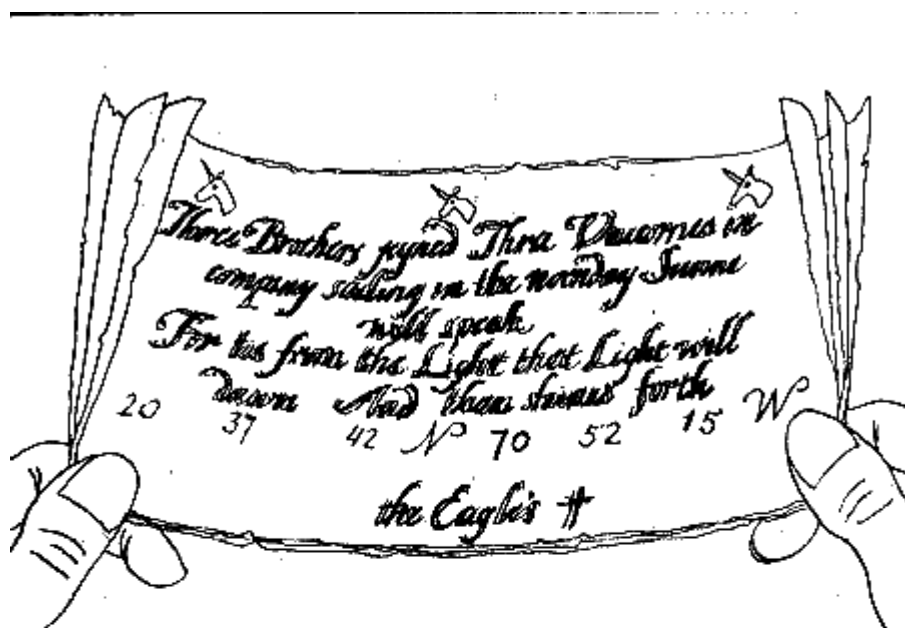 Three Brothers joyned Three Unicornes in
company sailing in the noonday Sunne
will speak
For tis from the Light that Light will
dawn And then shines forth
20 37 42 N 70 52 15 W
the Eagle's ✝